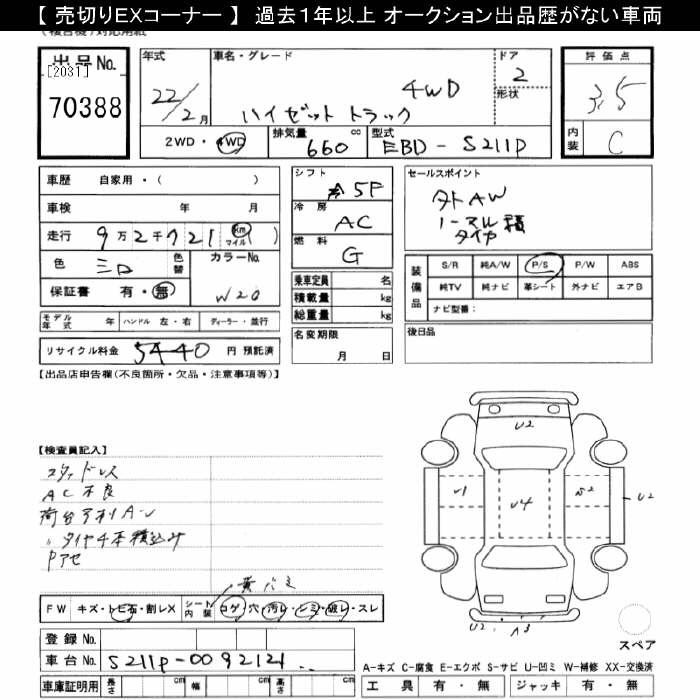 【 売切りEXコーナー 】 過去1年以上 オークション出品歴がない車両
出品No.
[2031]
70388
年式
22/2月
車名・グレード
4WD
ハイゼット トラック
ドア
2
形状
評価点
3.5
内装
C
2WD・4WD
排気量
660
cc
型式
EBD-S211P
車歴
自家用・( )
車検
年 月
走行
9万2千721(km マイル)
色
シロ
色替
カラーNo.
W20
保証書
有・無
モデル年式
年
ハンドル 左・右
ディーラー・並行
リサイクル料金
5440
円 預託済
シフト
5F
冷房
AC
燃料
G
乗車定員
名
積載量
kg
総重量
kg
名変期限
月 日
セールスポイント
タトAW
ノーマル
タイヤ
積
装備品
S/R 純A/W P/S P/W ABS
純TV 純ナビ 革シート 外ナビ エアB
ナビ型番:
後日品
【出品店申告欄(不良箇所・欠品・注意事項等)】
【検査員記入】
スタッドレス
AC不良
荷台
タイヤ4本積込み
Pアセ
FW
キズ・トビ石・割レX
シート内装
コゲ・穴・汚レ・シミ・破レ・スレ
登録No.
車台No.
S211P-0092121
車庫証明用
長さ
cm
幅
cm
高さ
cm
U2
U1
U4
U2
U2 A3
スペア
A-キズ C-腐食 E-エクボ S-サビ U-凹ミ W-補修 XX-交換済
工具
有・無
ジャッキ
有・無